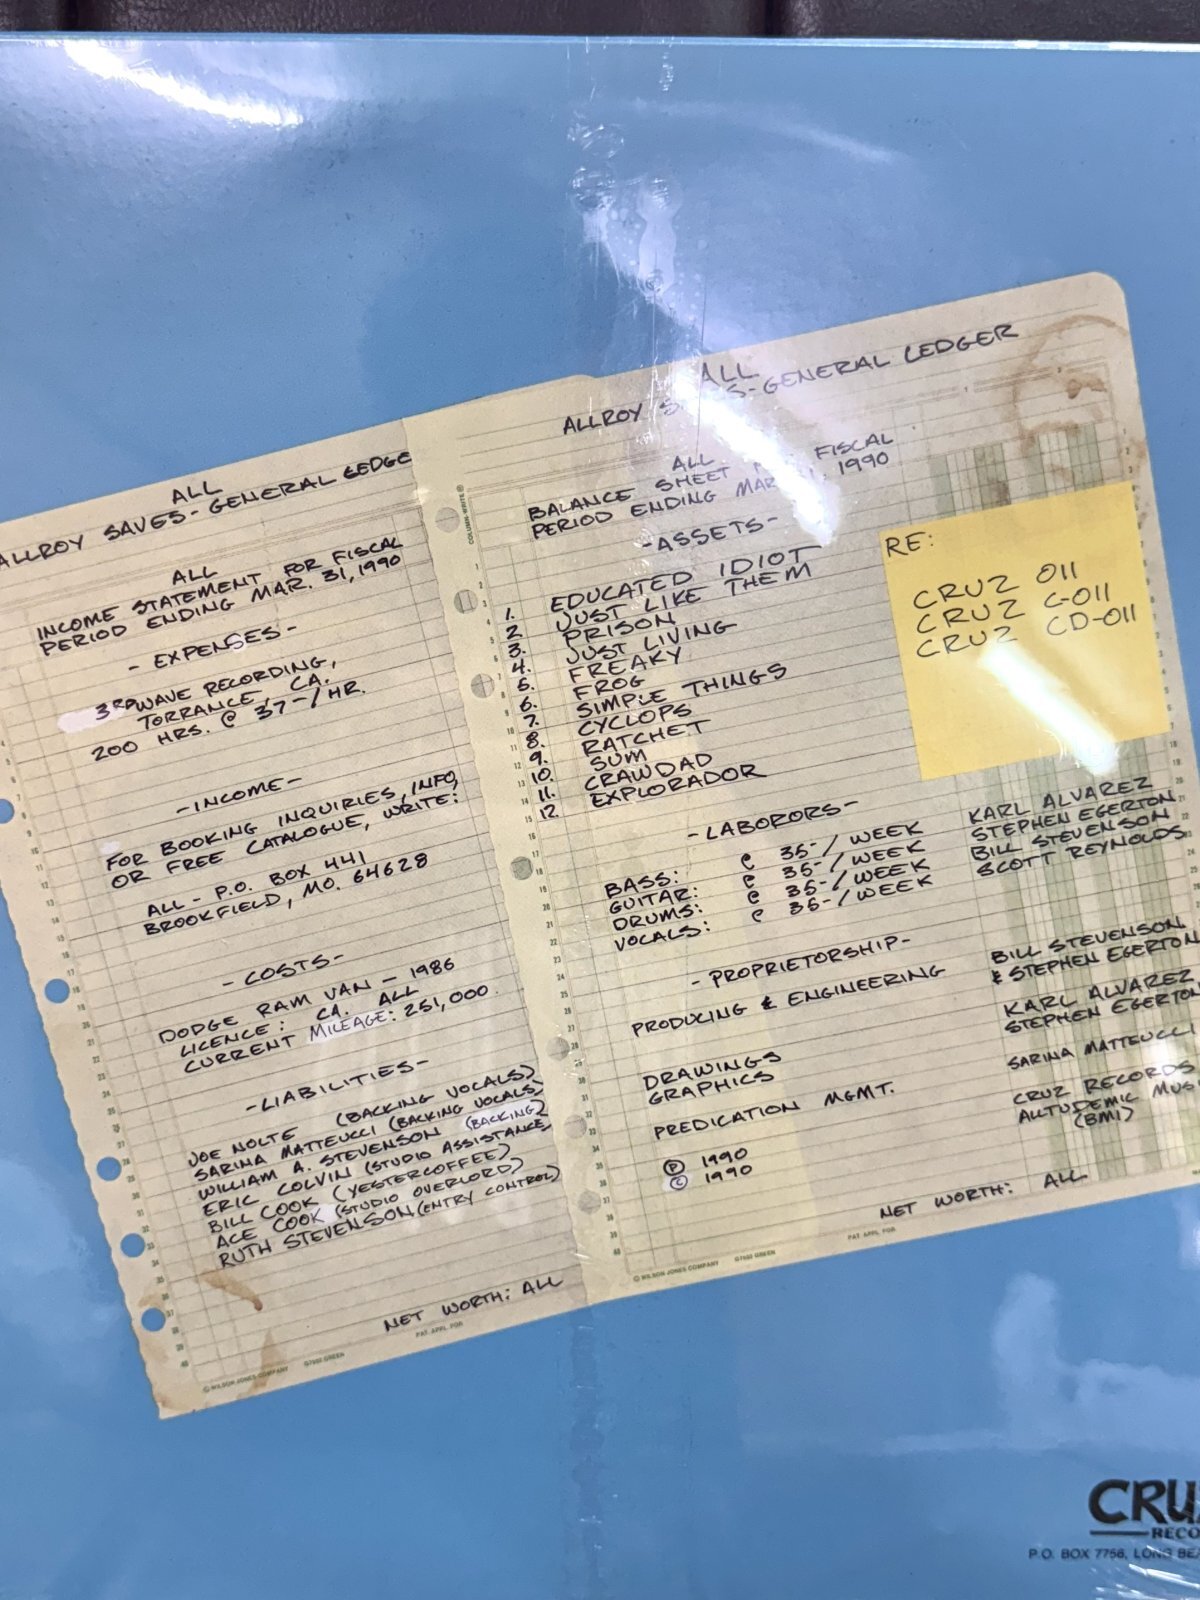 ALL
ALLROY SAVES - GENERAL LEDGE
ALL
INCOME STATEMENT FOR FISCAL
PERIOD ENDING MAR. 31, 1990
- EXPENSES -
3RD WAVE RECORDING,
TORRANCE, CA.
200 HRS. @ 37-/HR.
- INCOME -
FOR BOOKING INQUIRIES, INFO,
OR FREE CATALOGUE, WRITE:
ALL - P.O. BOX 441
BROOKFIELD, MO. 64628
- COSTS -
DODGE RAM VAN - 1986
LICENCE: CA. ALL
CURRENT MILEAGE: 251,000
- LIABILITIES -
JOE NOLTE (BACKING VOCALS)
SARINA MATTEUCCI (BACKING VOCALS)
WILLIAM A. STEVENSON (BACKING)
ERIC COLVIN (STUDIO ASSISTANCE)
BILL COOK (YESTERCOFFEE)
ACE COOK (STUDIO OVERLORD)
RUTH STEVENSON (ENTRY CONTROL)
NET WORTH: ALL
PAT. APPL. FOR
© WILSON JONES COMPANY G7560 GREEN
ALL
ALLROY S S - GENERAL LEDGER
ALL
BALANCE SHEET FISCAL
PERIOD ENDING MAR 1990
- ASSETS -
1. EDUCATED IDIOT
2. JUST LIKE THEM
3. PRISON
4. JUST LIVING
5. FREAKY
6. FROG
7. SIMPLE THINGS
8. CYCLOPS
9. RATCHET
10. SUM
11. CRAWDAD
12. EXPLORADOR
- LABORORS -
BASS: @ 35-/WEEK KARL ALVAREZ
GUITAR: @ 35-/WEEK STEPHEN EGERTON
DRUMS: @ 35-/WEEK BILL STEVENSON
VOCALS: @ 35-/WEEK SCOTT REYNOLDS
- PROPRIETORSHIP -
PRODUCING & ENGINEERING BILL STEVENSON
& STEPHEN EGERTON
DRAWINGS KARL ALVAREZ
GRAPHICS STEPHEN EGERTON
PREDICATION MGMT. SARINA MATTEUCCI
℗ 1990 CRUZ RECORDS
© 1990 ALLTUDEMIC MUS
(BMI)
NET WORTH: ALL
© WILSON JONES COMPANY G7560 GREEN PAT. APPL. FOR
COLUMN-WRITE®
RE:
CRUZ 011
CRUZ C-011
CRUZ CD-011
CRUZ
RECO
P.O. BOX 7756, LONG BEA